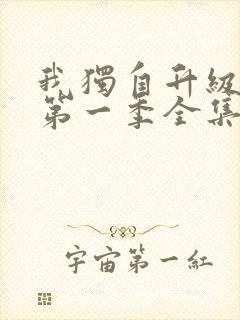 我獨自升級
第一季全集
宇宙第一紅